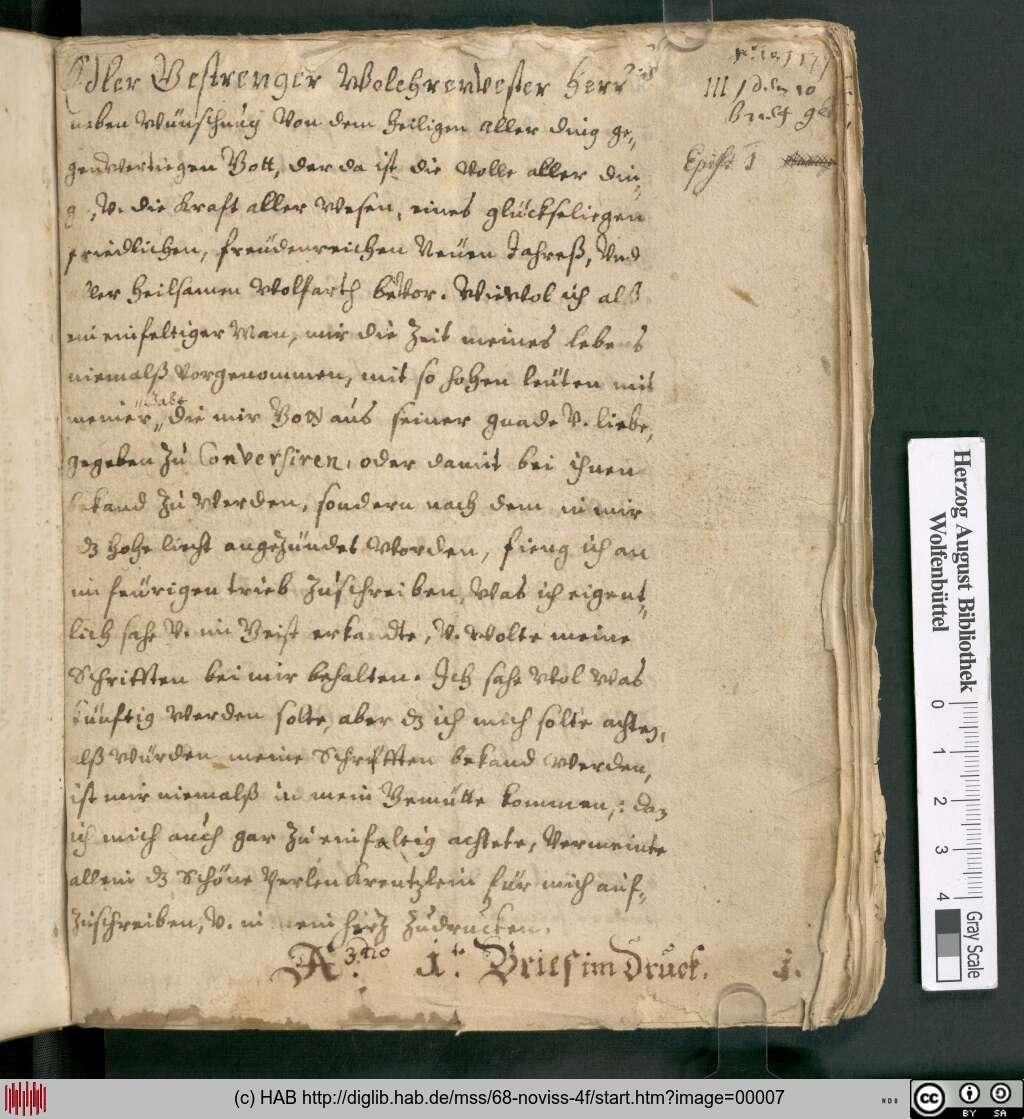 Edler Gestrenger Wolehrenvester Herr
neben Wünschung Von dem heiligen aller ding ge„
genwertiegen Gott, der da ist die Volle aller din„
g, V. die Kraft aller Wesen, eines glückseliegen
friedlichen, freüdenreichen Neüen Jahreß, Vnd
ler heilsamen Wolfarth bevor. Wiewol ich alß
ein einfeltiger Man, mir die Zeit meines lebens
niemalß vorgenommen, mit so hohen leüten mit
meiner „Gabe„ die mir Gott aus seiner gnade V. liebe,
gegeben Zu Conversiren, oder damit bei ihnen
bekand zu werden, sondern nach dem in mir
dz hohe liecht angezündet worden, fieng ich an
im feürigen trieb Zuschreiben, Was ich eigent„
lich sahe V. im Geist erkandte, V. wolte meine
Schrifften bei mir behalten. Ich sahe wol was
künftig werden solte, aber dz ich mich solte achten,
alß würden meine Schrifften bekand werden,
ist mir niemalß in mein Gemütte kommen,: daz
ich mich auch gar Zu einfaltig achtete, Vermeinte
allein dz Schöne Perlen Krentzlein für mich auf„
Zuschreiben, V. in mein hertz Zudrucken.
A. 3.tio 1.te Brief im Druck. 1.
III / den 10
Epist 1
Herzog August Bibliothek
Wolfenbüttel
0 1 2 3 4
Gray Scale
(c) HAB http://diglib.hab.de/mss/68-noviss-4f/start.htm?image=00007
cc BY SA